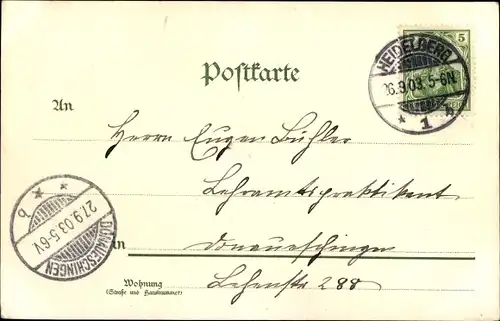 5
HEIDELBERG
26.9.03. 5-6N.
* 1 b
Postkarte
An
Herrn Eugen Bühler
Lehramtspraktikant
* *
27.9.03.5-6V.
b
DONAUESCHINGEN
in Donaueschingen
Wohnung
(Straße und Hausnummer)
Lehenstr 288